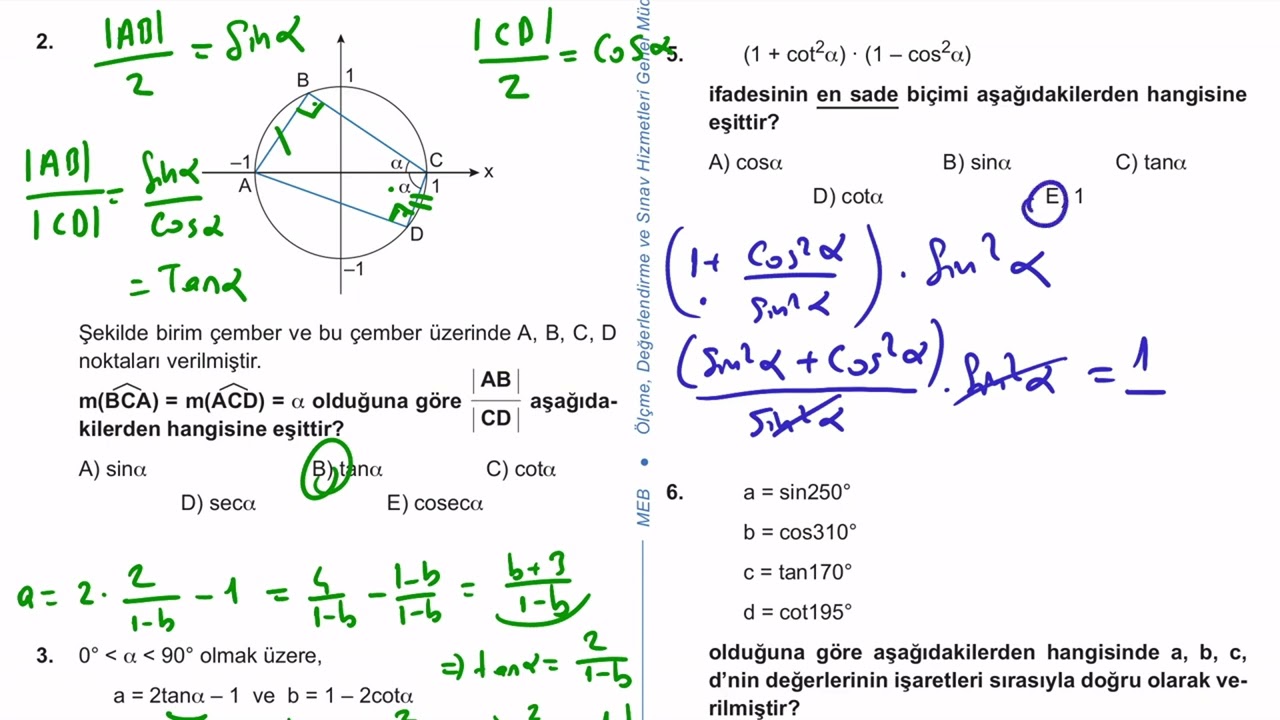 2.
|AB|/2 = sinα
|CD|/2 = cosα
|AB|/|CD| = sinα/cosα
= Tanα
B
1
–1
A
α
C
x
α
1
D
–1
Şekilde birim çember ve bu çember üzerinde A, B, C, D
noktaları verilmiştir.
m(BCA) = m(ACD) = α olduğuna göre |AB|/|CD| aşağıda-
kilerden hangisine eşittir?
A) sinα B) tanα C) cotα
D) secα E) cosecα
a = 2 · 2/(1-b) - 1 = 4/(1-b) - (1-b)/(1-b) = (b+3)/(1-b)
3. 0° < α < 90° olmak üzere,
⇒ tanα = 2/(1-b)
a = 2tanα – 1 ve b = 1 – 2cotα
MEB • Ölçme, Değerlendirme ve Sınav Hizmetleri Genel Müd
5. (1 + cot²α) · (1 – cos²α)
ifadesinin en sade biçimi aşağıdakilerden hangisine
eşittir?
A) cosα B) sinα C) tanα
D) cotα E) 1
(1 + cos²α/sin²α) · sin²α
(sin²α + cos²α)/sin²α · sin²α = 1
6. a = sin250°
b = cos310°
c = tan170°
d = cot195°
olduğuna göre aşağıdakilerden hangisinde a, b, c,
d’nin değerlerinin işaretleri sırasıyla doğru olarak ve-
rilmiştir?